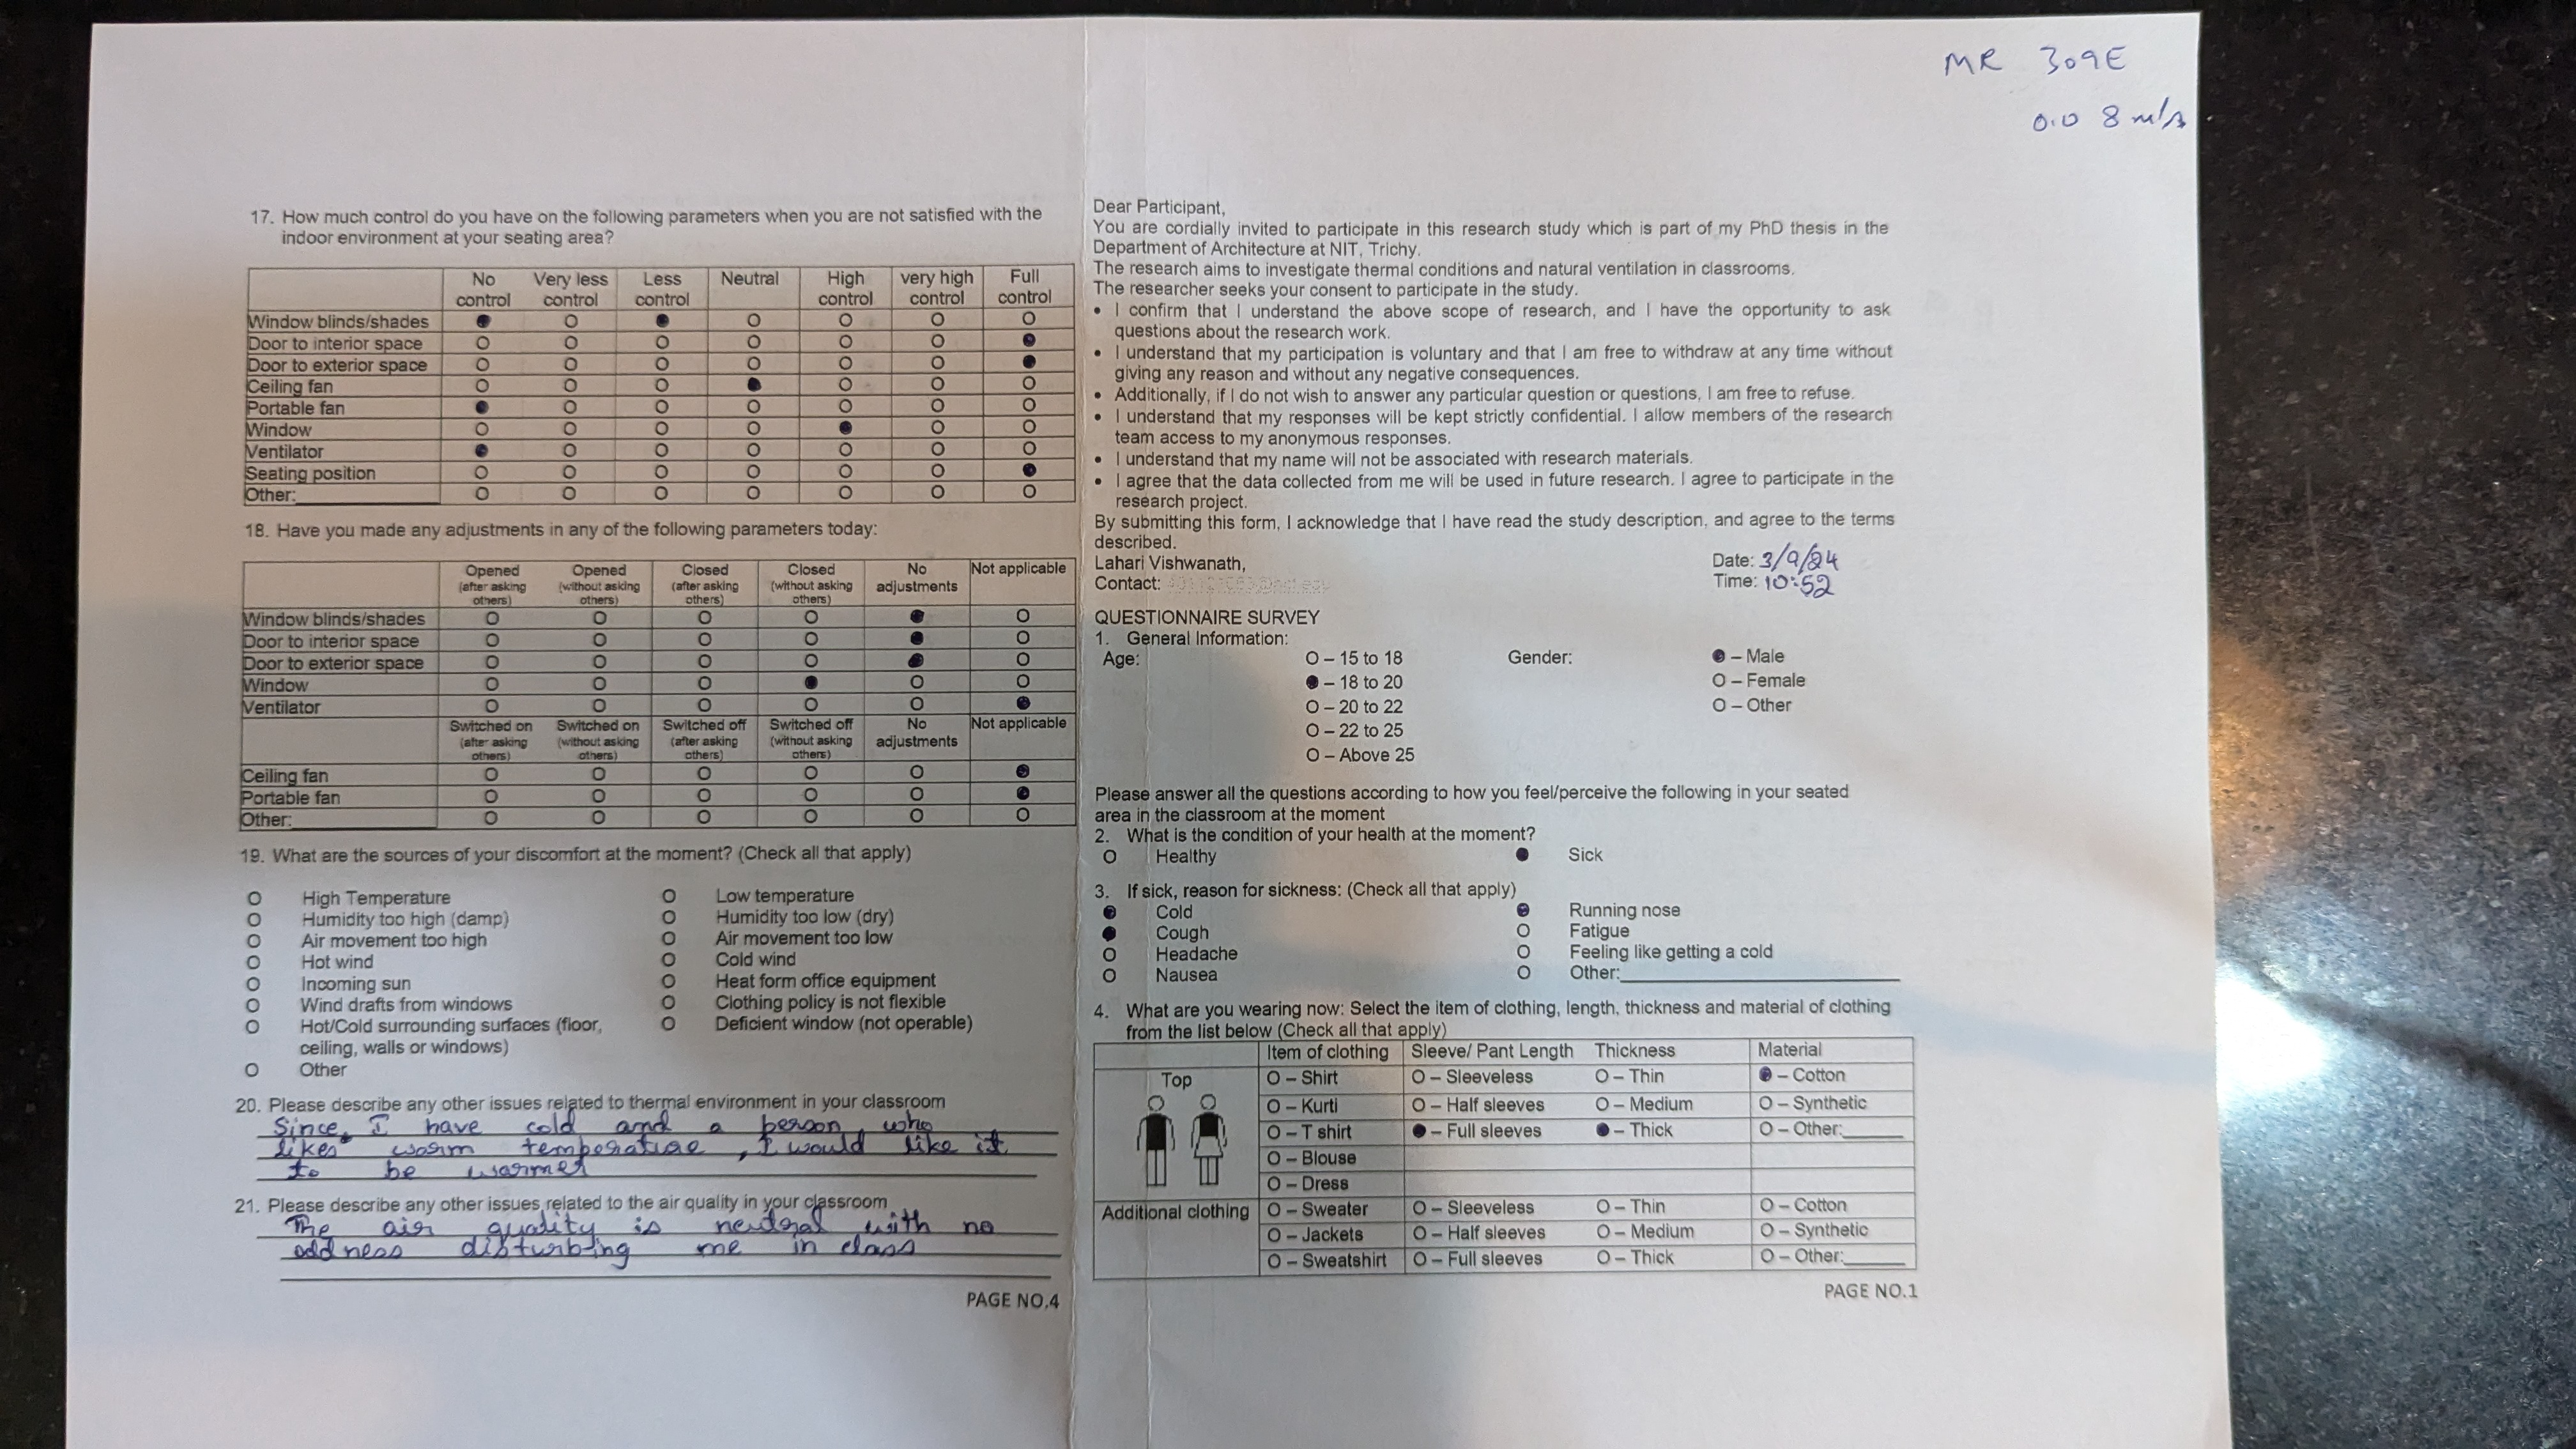 MR 309E
0.08 m/s
17. How much control do you have on the following parameters when you are not satisfied with the
indoor environment at your seating area?
No control Very less control Less control Neutral High control very high control Full control
Window blinds/shades ● O ● O O O O
Door to interior space O O O O O O ●
Door to exterior space O O O O O O ●
Ceiling fan O O O ● O O O
Portable fan ● O O O O O O
Window O O O O ● O O
Ventilator ● O O O O O O
Seating position O O O O O O ●
Other:________ O O O O O O O
18. Have you made any adjustments in any of the following parameters today:
Opened (after asking others) Opened (without asking others) Closed (after asking others) Closed (without asking others) No adjustments Not applicable
Window blinds/shades O O O O ● O
Door to interior space O O O O ● O
Door to exterior space O O O O ● O
Window O O O ● O O
Ventilator O O O O O ●
Switched on (after asking others) Switched on (without asking others) Switched off (after asking others) Switched off (without asking others) No adjustments Not applicable
Ceiling fan O O O O O ●
Portable fan O O O O O ●
Other:________ O O O O O O
19. What are the sources of your discomfort at the moment? (Check all that apply)
O High Temperature O Low temperature
O Humidity too high (damp) O Humidity too low (dry)
O Air movement too high O Air movement too low
O Hot wind O Cold wind
O Incoming sun O Heat form office equipment
O Wind drafts from windows O Clothing policy is not flexible
O Hot/Cold surrounding surfaces (floor, O Deficient window (not operable)
ceiling, walls or windows)
O Other
20. Please describe any other issues related to thermal environment in your classroom
Since, I have cold and a person who
likes warm temperature, I would like it
to be warmer
21. Please describe any other issues related to the air quality in your classroom
The air quality is neutral with no
oddness disturbing me in class
PAGE NO.4
Dear Participant,
You are cordially invited to participate in this research study which is part of my PhD thesis in the
Department of Architecture at NIT, Trichy.
The research aims to investigate thermal conditions and natural ventilation in classrooms.
The researcher seeks your consent to participate in the study.
• I confirm that I understand the above scope of research, and I have the opportunity to ask
questions about the research work.
• I understand that my participation is voluntary and that I am free to withdraw at any time without
giving any reason and without any negative consequences.
• Additionally, if I do not wish to answer any particular question or questions, I am free to refuse.
• I understand that my responses will be kept strictly confidential. I allow members of the research
team access to my anonymous responses.
• I understand that my name will not be associated with research materials.
• I agree that the data collected from me will be used in future research. I agree to participate in the
research project.
By submitting this form, I acknowledge that I have read the study description, and agree to the terms
described.
Lahari Vishwanath, Date: 3/9/24
Contact: Time: 10:52
QUESTIONNAIRE SURVEY
1. General Information:
Age: O – 15 to 18 Gender: ● – Male
● – 18 to 20 O – Female
O – 20 to 22 O – Other
O – 22 to 25
O – Above 25
Please answer all the questions according to how you feel/perceive the following in your seated
area in the classroom at the moment
2. What is the condition of your health at the moment?
O Healthy ● Sick
3. If sick, reason for sickness: (Check all that apply)
● Cold ● Running nose
● Cough O Fatigue
O Headache O Feeling like getting a cold
O Nausea O Other:________
4. What are you wearing now: Select the item of clothing, length, thickness and material of clothing
from the list below (Check all that apply)
Item of clothing Sleeve/ Pant Length Thickness Material
Top O – Shirt O – Sleeveless O – Thin ● – Cotton
O – Kurti O – Half sleeves O – Medium O – Synthetic
O – T shirt ● – Full sleeves ● – Thick O – Other:______
O – Blouse
O – Dress
Additional clothing O – Sweater O – Sleeveless O – Thin O – Cotton
O – Jackets O – Half sleeves O – Medium O – Synthetic
O – Sweatshirt O – Full sleeves O – Thick O – Other:______
PAGE NO.1